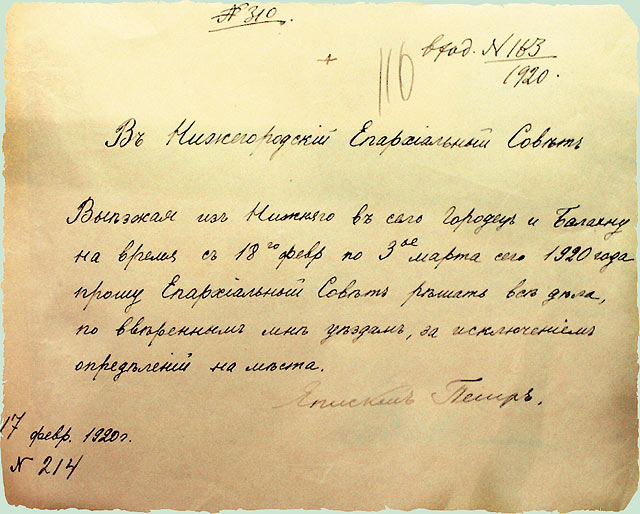 № 310.
+
116
вход. № 163
1920.
Въ Нижегородскій Епархіальный Совѣтъ
Выѣзжая изъ Нижняго въ село Городецъ и Балахну
на время съ 18го февр по 3ое марта сего 1920 года
прошу Епархіальный Совѣтъ рѣшать всѣ дѣла,
по ввѣреннымъ мнѣ уѣздамъ, за исключеніемъ
опредѣленій на мѣста.
Епископъ Петръ.
17 февр. 1920 г.
№ 214